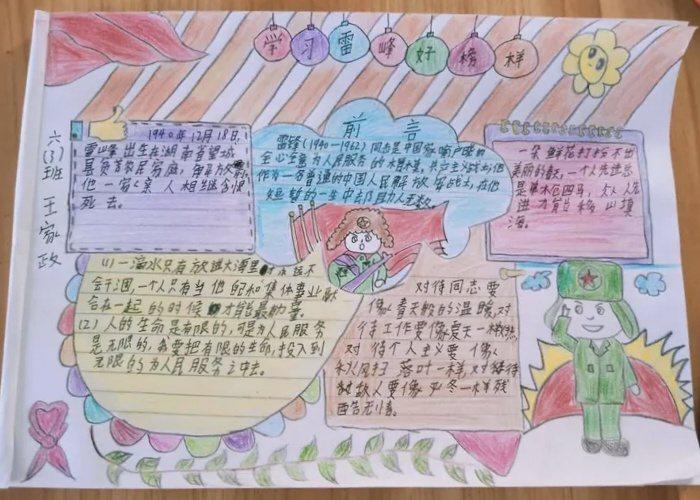 学习雷峰好榜样
六(3)班 王家政
1940年12月18日,
雷峰出生在湖南省望城
县贫苦农民家庭,解放前
他一家亲人相继含恨
死去。
前言
雷锋(1940-1962)同志是中国家喻户晓的
全心全意为人民服务的楷模,共产主义战士,他
作为一名普通的中国人民解放军战士,在他
短暂的一生中却助人无数。
一朵鲜花打扮不出
美丽的春天,一个人先进总
是单
众人先
进才能移山填
海。
(1)一滴水只有放进大海里
才能最有力量。
(2)人的生命是有限的,可是为人民服务
是无限的,我要把有限的生命,投入到
无限的为人民服务之中去。
对待同志要
像春天般的温暖,对
待工作要像夏天一样
对待个人主义要像
秋风扫落叶一样,对待
敌人要像严冬一样残
酷无情。